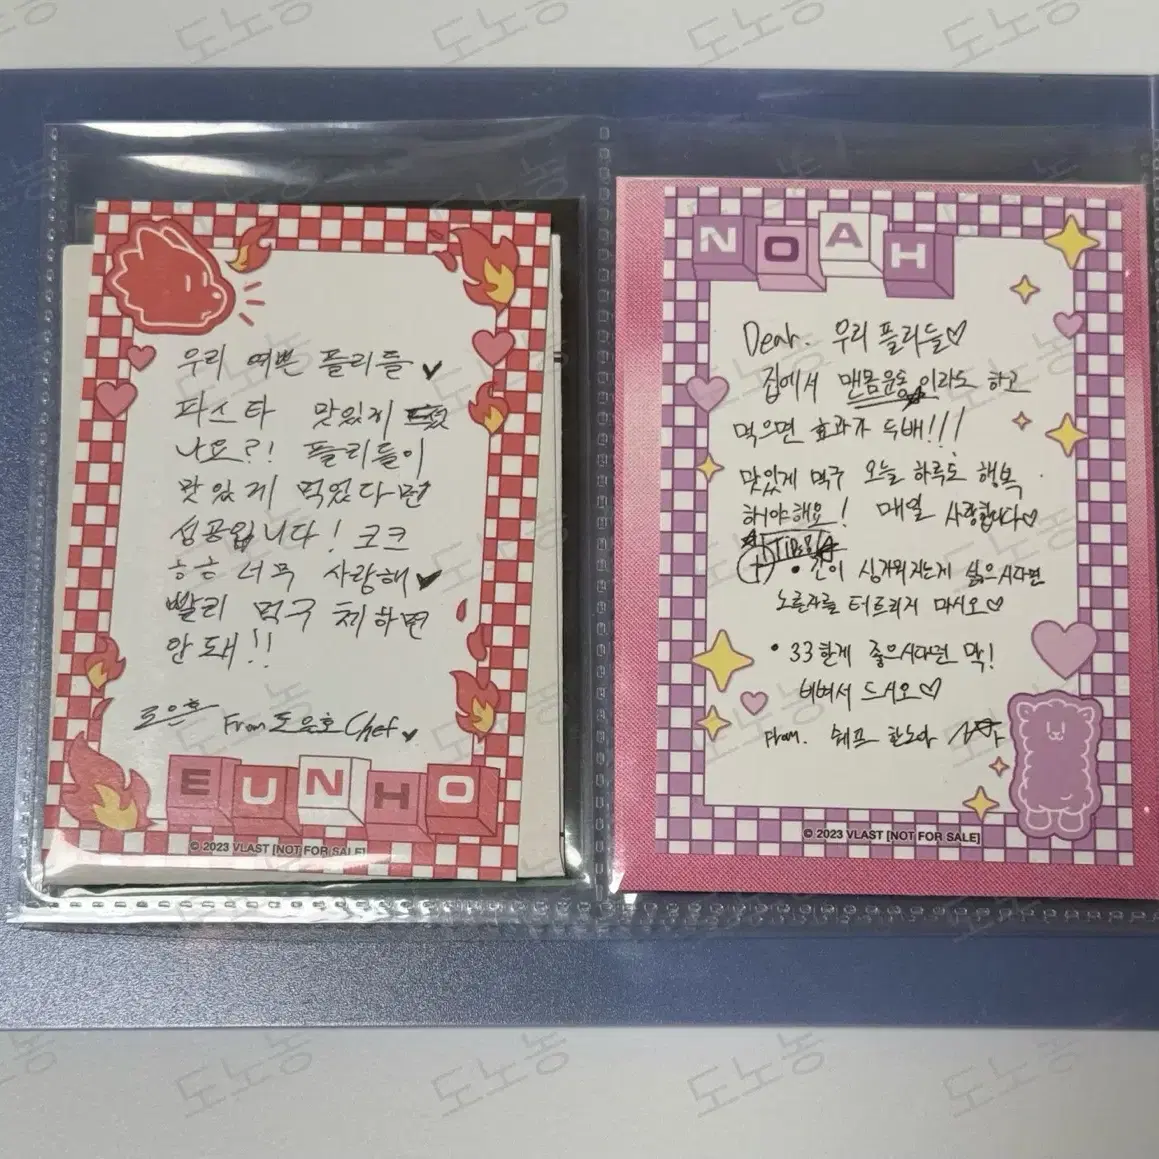 우리 예쁜 플리들
파스타 맛있게
나요?! 플리들이
맛있게 먹었다면
성공입니다! 코크
ㅎㅎ 너무 사랑해
빨리 먹구 체하면
안돼!!
도은호 From 도은호 Chef
EUNHO
© 2023 VLAST [NOT FOR SALE]
NOAH
Dear. 우리 플리들♡
집에서 맨몸운동 이라도 하고
먹으면 효과가 두배!!!
맛있게 먹구 오늘 하루도 행복
해야해요! 매일 사랑합니다♡
• 간이 싱거워지는게 싫으시다면
노른자를 터트리지 마시오♡
• 33한게 좋으시다면 막!
비벼서 드시오♡
From. 쉐프 한노아
© 2023 VLAST [NOT FOR SALE]
도노농